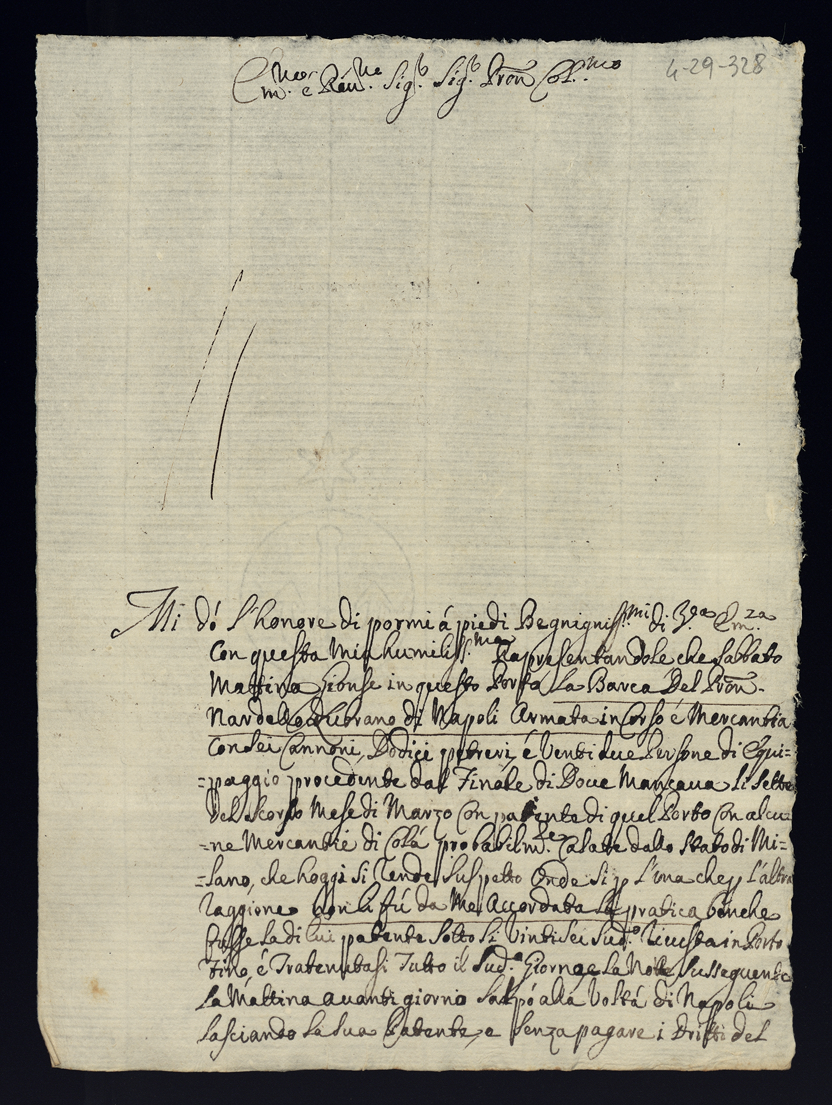 Em.mo e Reu.mo Sig.r Sig.r Pron Col.mo
4-29-328
Mi dó l'honore di pormi á piedi Begnigniss.mi di V.ra Em.za
Con questa Mia humiliss.ma Rapresentandole che Sabbato
Mattina Gionse in questo Porto La Barca Del Pron.
Nardello di Napoli Armata in Corso é Mercantia
Con Sei Cannoni, Dodici petreri é Venti due Persone di Equi=
=paggio procedente dal Finale di Doue Mancaua li Sette
Del Scorso Mese di Marzo Con patente di quel Porto Con alcu=
=ne Mercantie di Colá probabilm.te Calate dallo Stato di Mi=
=lano, che hoggi Si Rende Suspetto Onde Si p l'una che p l'altra
Raggione non li fú da Me Accordata la pratica benche
fusse La di lui patente Sotto li Vinti Sei Sud.o Riuista in Porto
fino, é Tratenutasi Tutto il Sud.o Giorno e La Notte Susseguente
La Mattina auanti giorno Salpó alla Volta di Napoli
Lasciando La Sua Patente, e Senza pagare i Dritti del